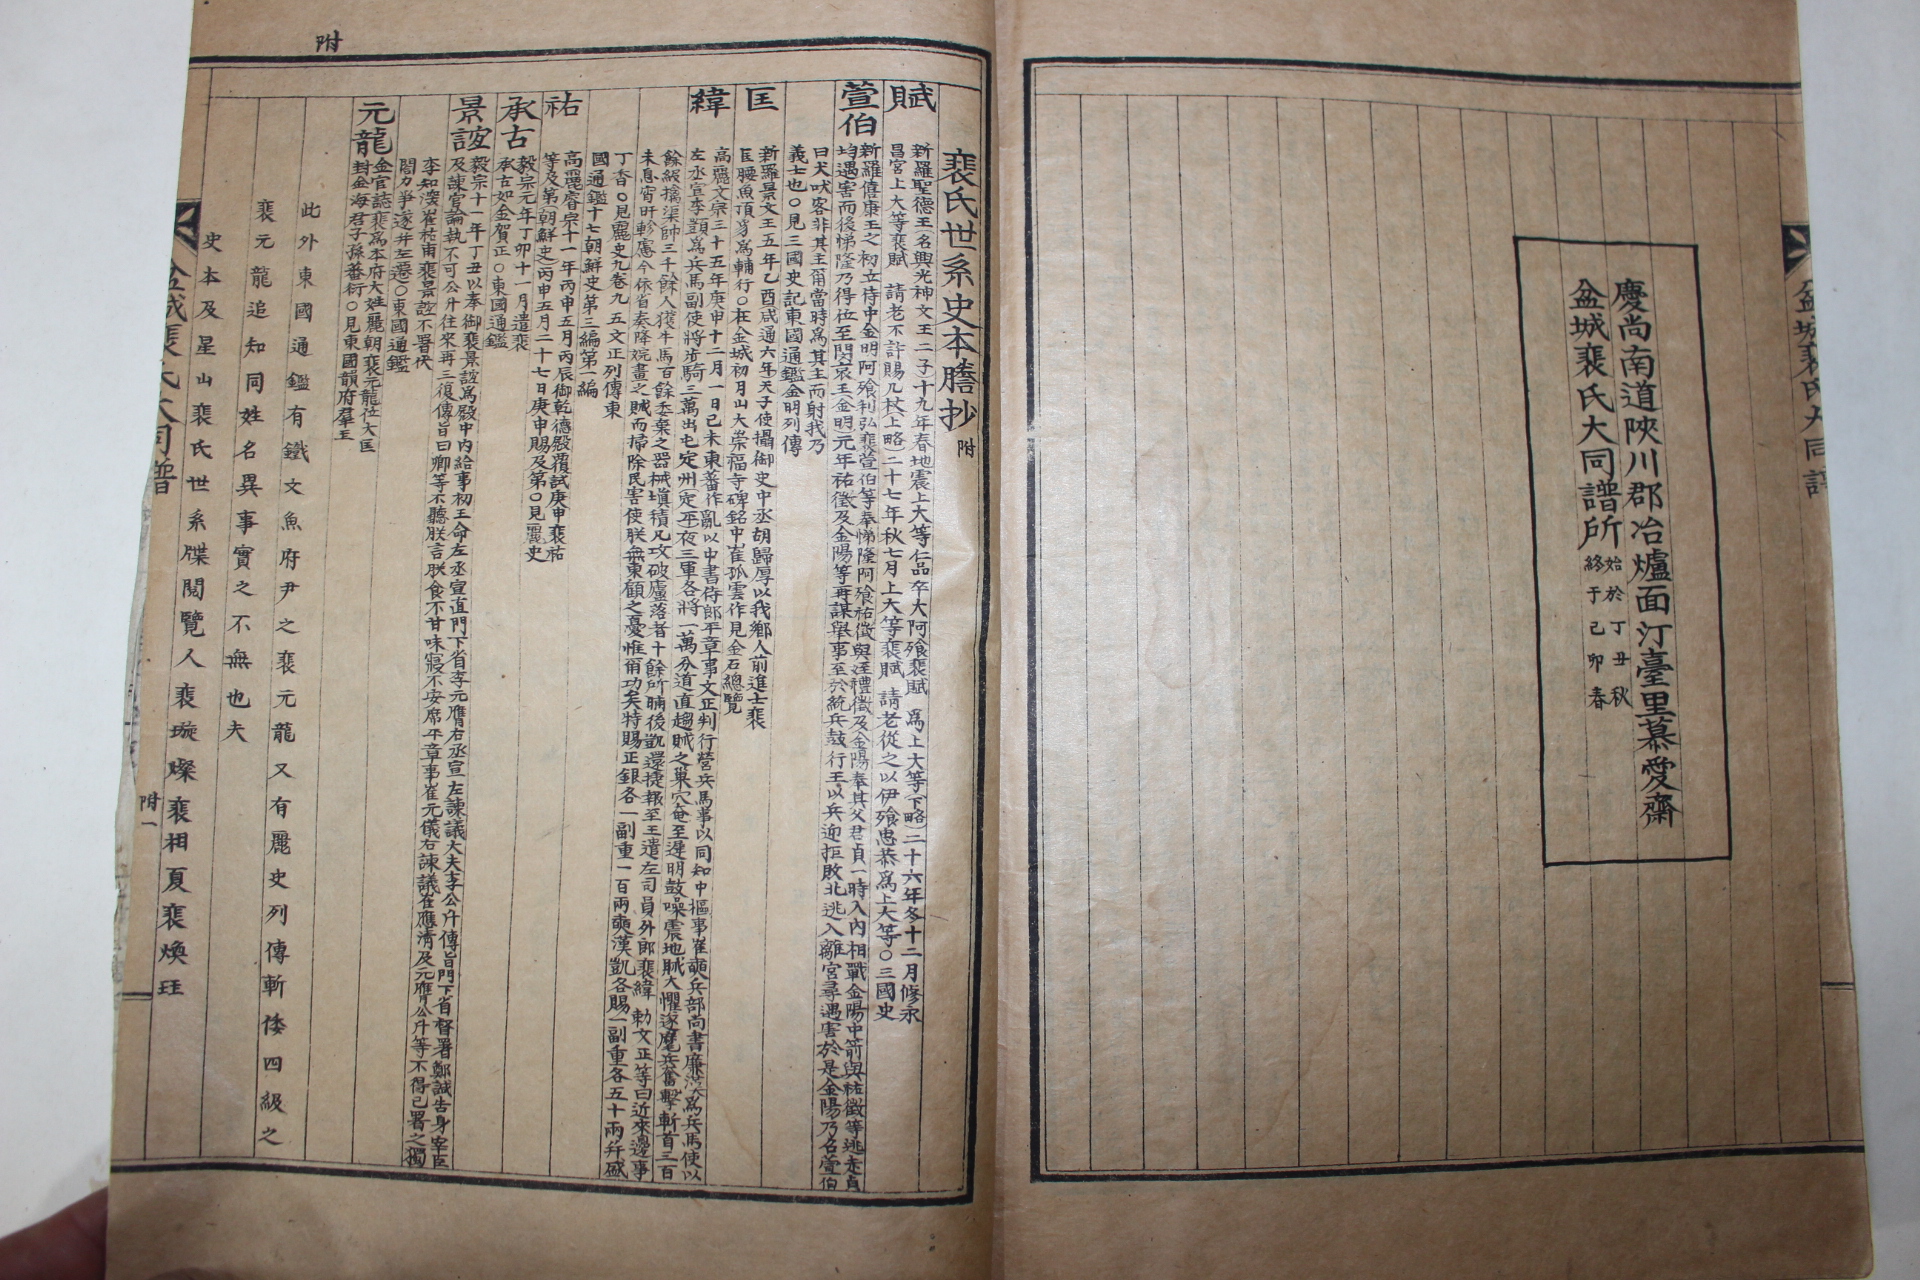 盆城裵氏大同譜
慶尚南道陜川郡冶爐面汀臺里慕愛齋
盆城裵氏大同譜所
始於丁丑秋
終于己卯春
附
裵氏世系史本謄抄 附
賦
新羅聖德王名興光神文王二子十九年春地震上大等仁品卒大阿飱裵賦 爲上大等(下略)二十六年冬十二月修永
昌宮上大等裵賦 請老不許賜几杖(上略)二十七年秋七月上大等裵賦 請老從之以伊飱思恭爲上大等〇三國史
萱伯
新羅僖康王之初立侍中金明阿飱利弘裵萱伯等奉悌隆阿飱祐徵與姪禮徵及金陽奉其父君貞一時入內相戰金陽中箭與祐徵等逃走貞
均遇害而後悌隆乃得位至閔哀王金明元年祐徵及金陽等再謀舉事至於統兵鼓行王以兵迎拒敗北逃入離宮尋遇害於是金陽乃名萱伯
曰犬吠客非其主爾當時爲其主而射我乃
義士也〇見三國史記東國通鑑金明列傳
匡
新羅景文王五年乙酉咸通六年天子使攝御史中丞胡歸厚以我鄕人前進士裵
匡腰魚頂豸爲輔行〇在金城初月山大崇福寺碑銘中崔孤雲作見金石總覽
緯
高麗文宗三十五年庚申十二月一日己未東蕃作亂以中書侍郞平章事文正判行營兵馬事以同知中樞事崔奭兵部尚書廉漢爲兵馬使以
左丞宣李顗爲兵馬副使將步騎三萬出屯定州定平夜三軍各將一萬分道直趨賊之巢穴奄至遲明鼓噪震地賊大懼遂麾兵奮擊斬首三百
餘級擒渠帥三千餘人獲牛馬百餘委棄之器械塡積凡攻破廬落者十餘所晡後凱還捷報至王遣左司員外郞裵緯 勅文正等曰近來邊事
未息宵旰軫慮今依省奏降婉畫之賊而掃除民害使朕無東顧之憂惟爾功矣特賜正銀各一副重一百兩奭漢凱各賜一副重各五十兩幷盛
丁香〇見麗史九卷九五文正列傳東
國通鑑十七朝鮮史第三編第一編
祐
高麗睿宗十一年丙申五月丙辰御乾德殿覆試庚申裵祐
等及第(朝鮮史)丙申五月二十七日庚申賜及第〇見麗史
承古
毅宗元年丁卯十一月遣裵
承古如金賀正〇東國通鑑
景誼
毅宗十一年丁丑以奉御裵景誼爲殿中內給事初王命左丞宣直門下省李元膺右丞宣左諫議大夫李公升傳旨門下省督署鄭諴告身宰臣
及諫官論執不可公升往來再三復傳旨曰卿等不聽朕言朕食不甘味寢不安席平章事崔元儀右諫議崔應淸及元膺公升等不得已署之獨
李知深崔祐甫裵景誼不署伏
閤力爭遂幷左遷〇東國通鑑
元龍
金官誌裵爲本府大姓麗朝裵元龍位大匡
封金海君子孫蕃衍〇見東國韻府羣玉
此外東國通鑑有鐵文魚府尹之裵元龍又有麗史列傳斬倭四級之
裵元龍追知同姓名異事實之不無也夫
史本及星山裵氏世系牒閱覽人裵璇燦裵相夏裵煥珏
盆城裵氏大同譜
附一